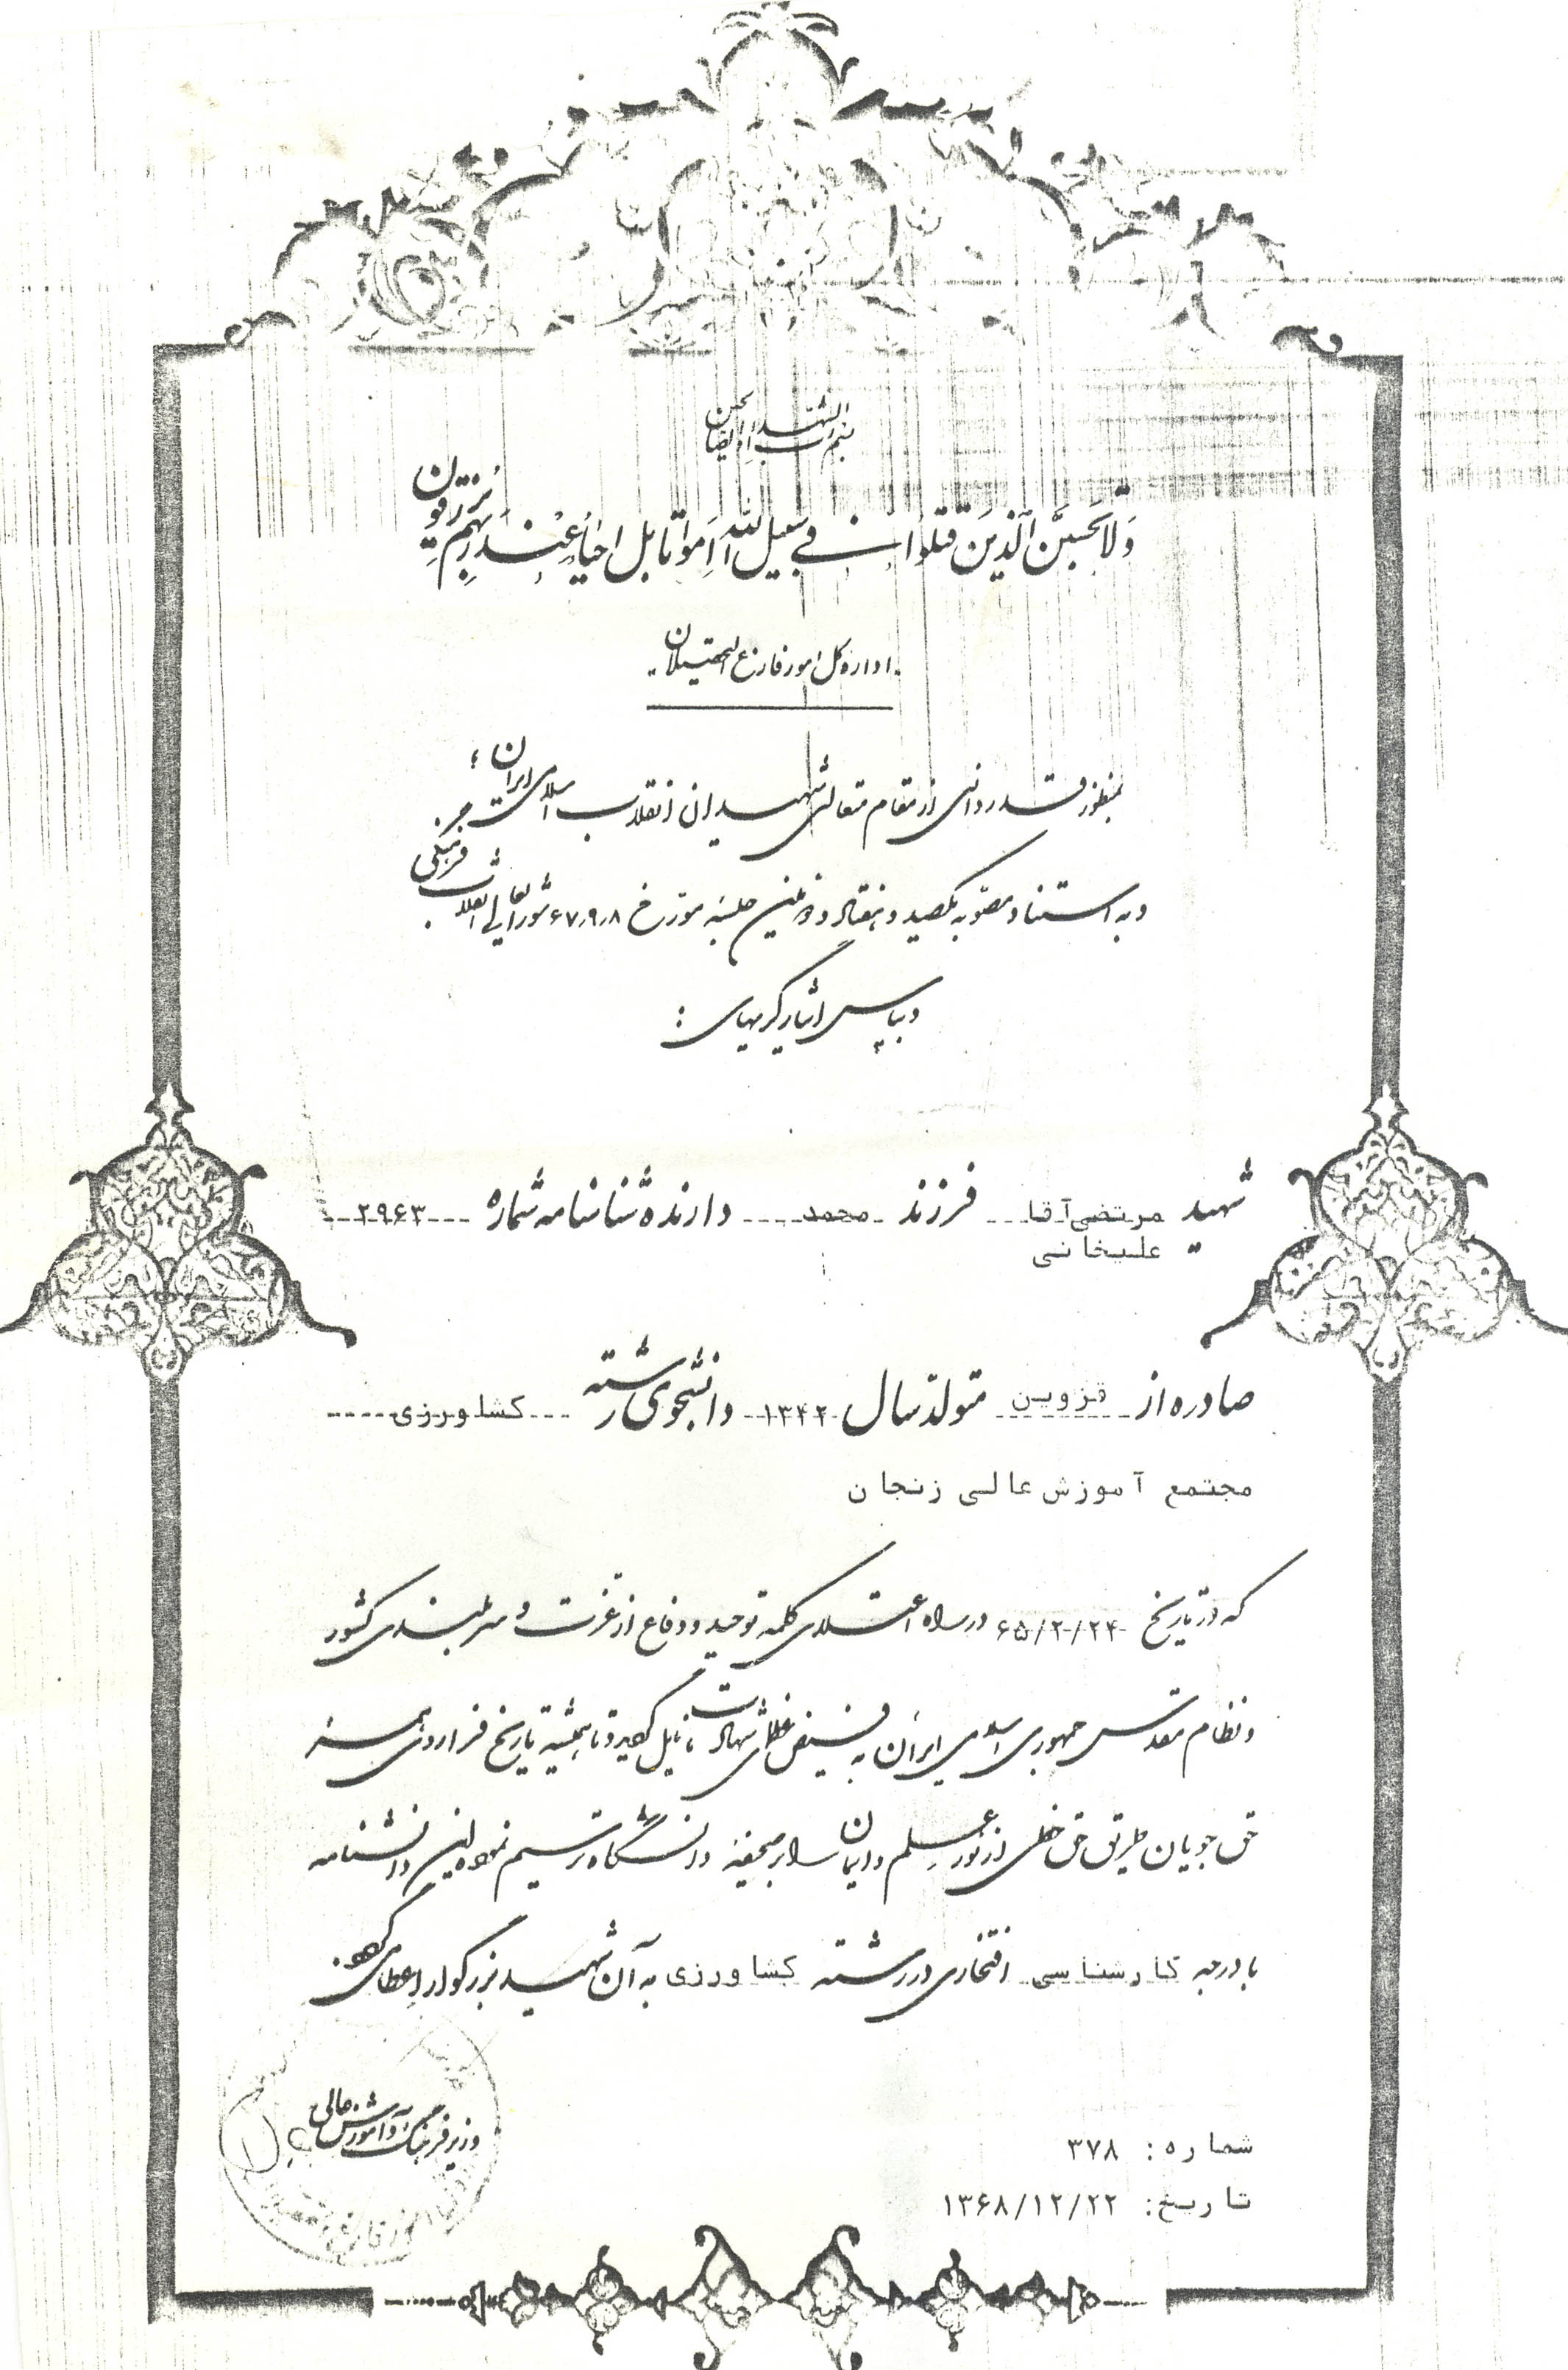 بسم رب الشهداء و الصالحین
وَلا تَحسَبَنَّ الَّذینَ قُتِلوا فی سَبیلِ اللهِ اَمواتاً بَل اَحیاءٌ عِندَ رَبِّهِم یُرزَقون
اداره کل امور فارغ التحصیلان
بمنظور قدردانی از مقام متعالی شهیدان انقلاب اسلامی ایران ؛
و به استناد مصوبه یکصد و هفتاد و دومین جلسه مورخ ۶۷٫۹٫۸ شورای عالی انقلاب فرهنگی
و بپاس ایثارگریهای :
شهید مرتضی آقا فرزند محمد دارنده شناسنامه شماره ۲۹۶۳
علیخانی
صادره از قزوین متولد سال ۱۳۴۲ دانشجوی رشته کشاورزی
مجتمع آموزش عالی زنجان
که در تاریخ ۶۵/۲/۲۴ در راه اعتلای کلمه توحید و دفاع از عزت و سربلندی کشور
و نظام مقدس جمهوری اسلامی ایران به فیض عظمای شهادت نایل گردید و تا همیشه تاریخ فرا روی همه
حق جویان طریق حق خطی از نور علم و ایمان را بر صحیفه دانشگاه ترسیم نمود این دانشنامه
با درجه کارشناسی افتخاری در رشته کشاورزی به آن شهید بزرگوار اعطا می گردد.
وزیر فرهنگ و آموزش عالی
شماره: ۳۷۸
تاریخ: ۱۳۶۸/۱۲/۲۲